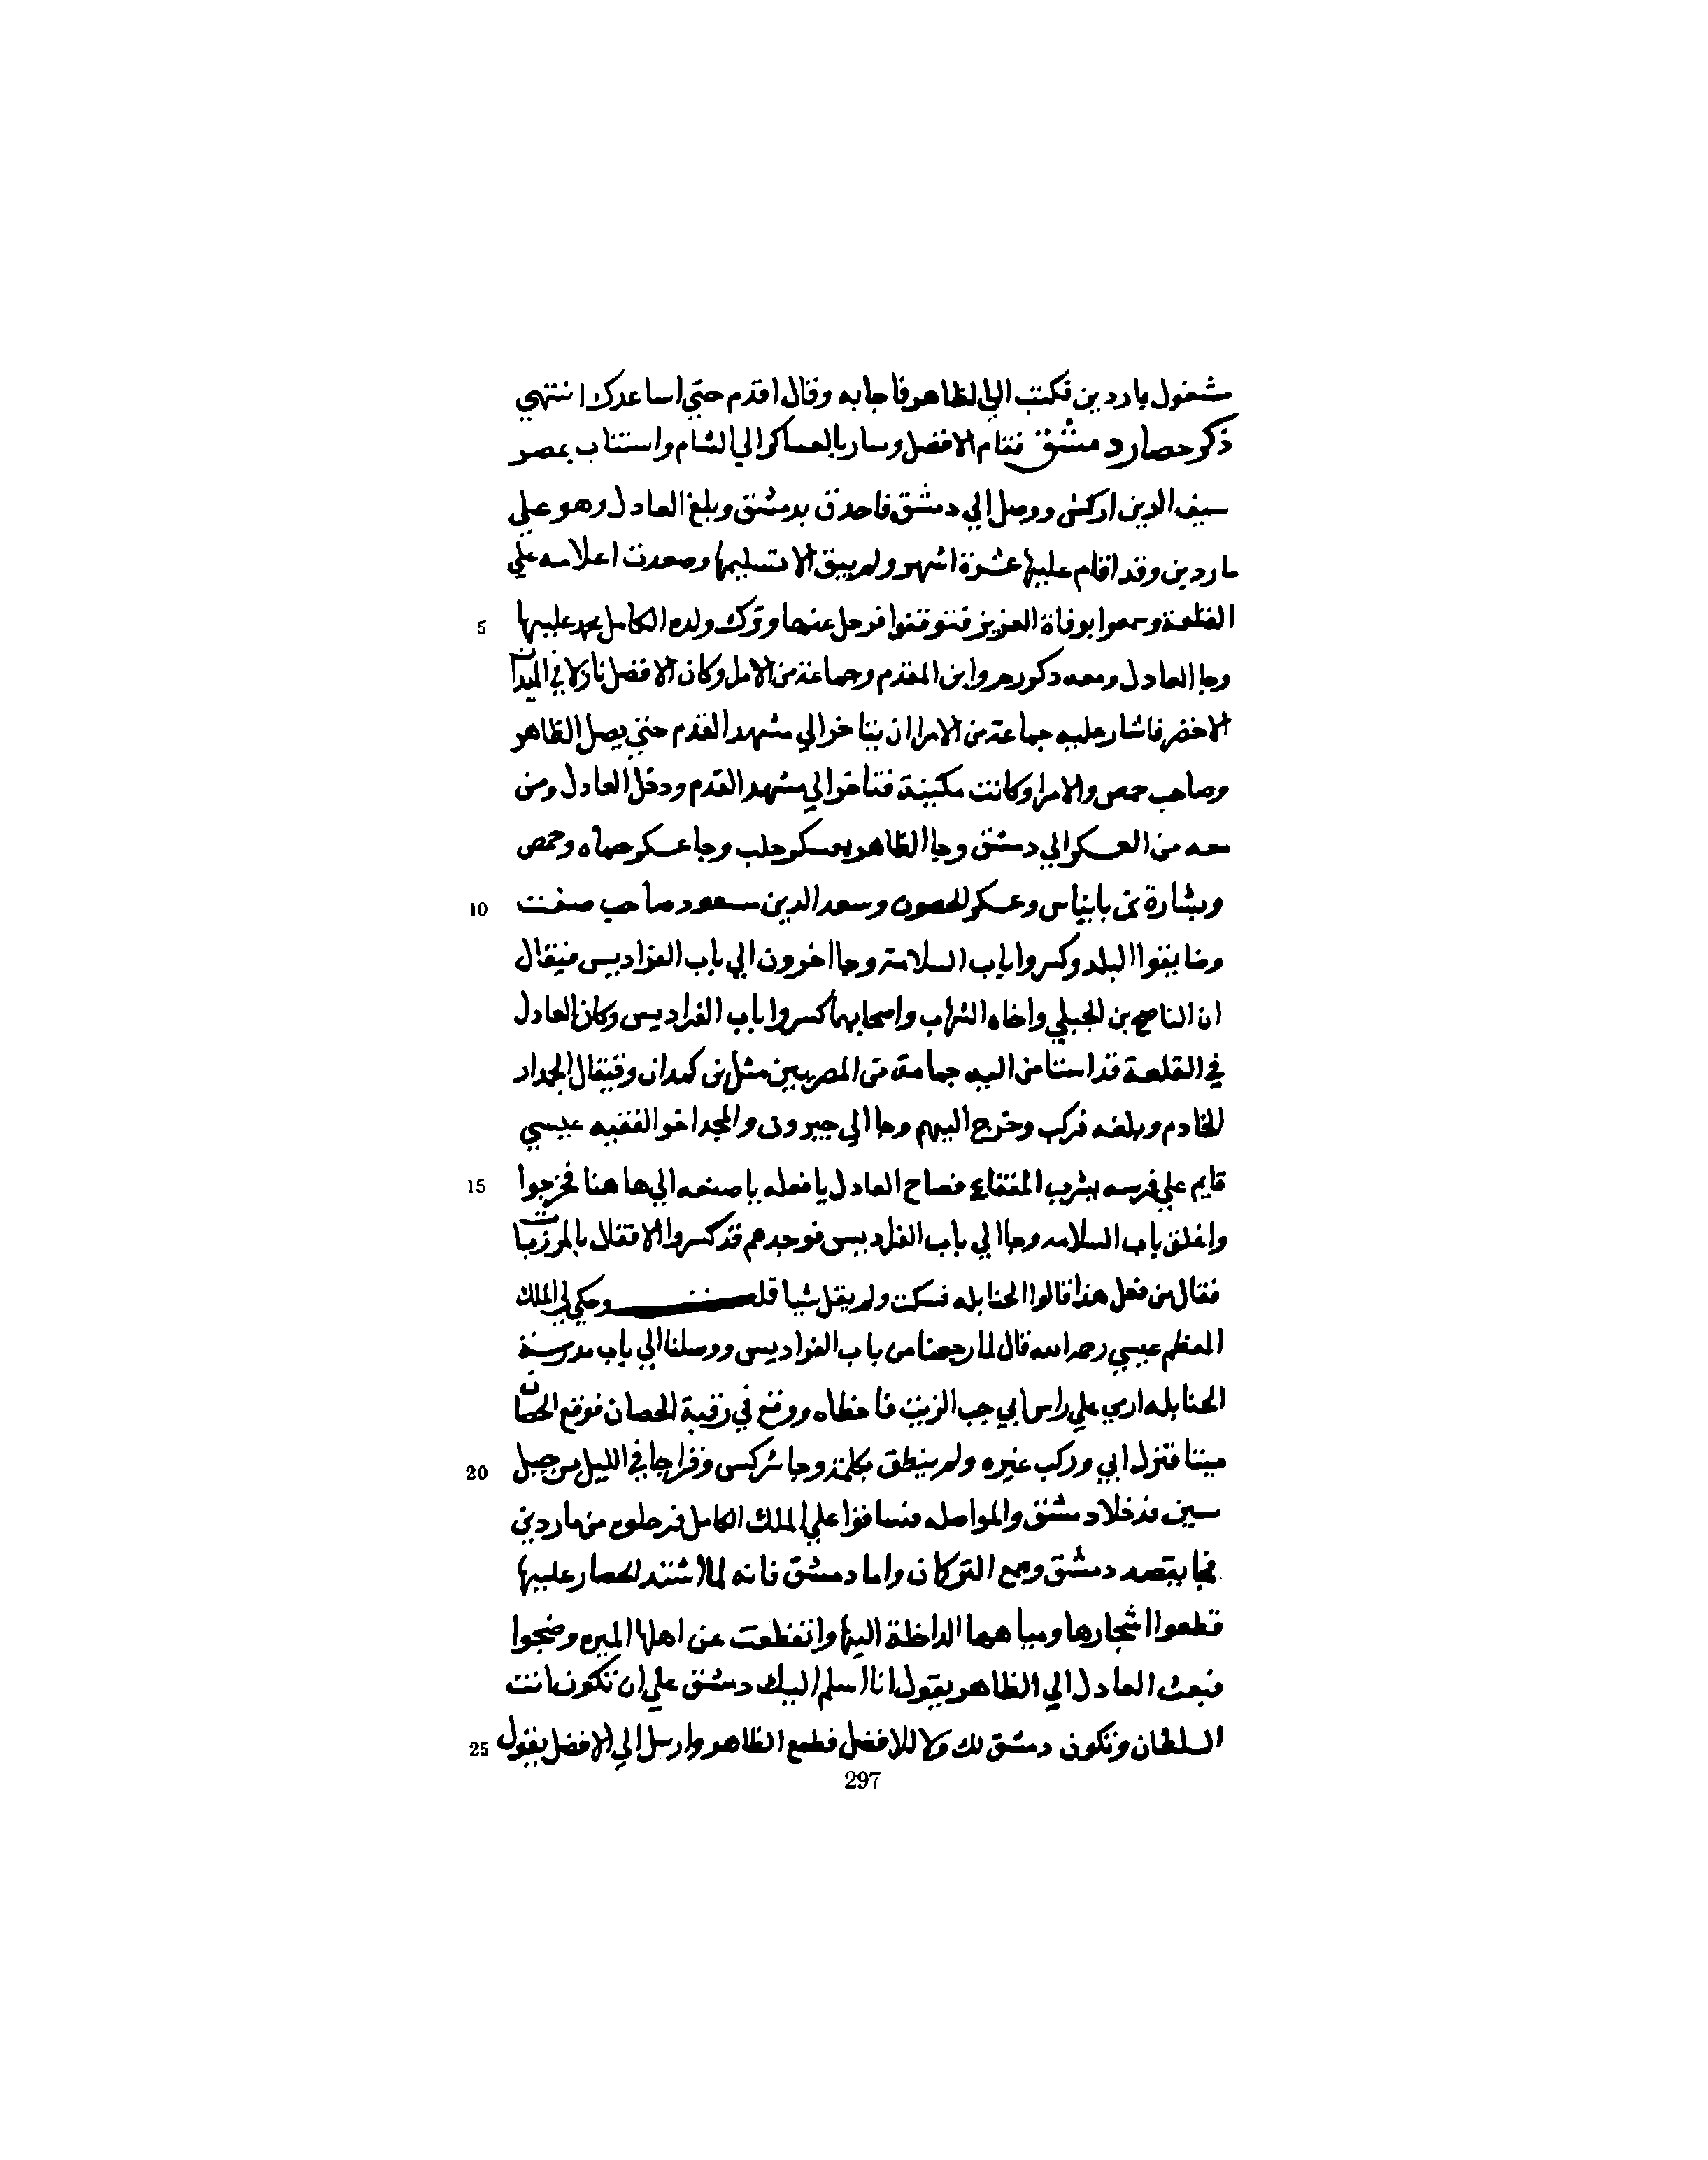 مشغول بماردين فكتب الي الظاهر فاجابه وقال اقدم حتي اساعدك انتهي
ذكر حصار دمشق فقام الافضل وسار بالعساكر الي الشام واستناب بمصر
سيف الدين اركش ووصل الي دمشق فاحدق بدمشق وبلغ العادل وهو علي
ماردين وقد اقام عليها عشرة اشهر ولم يبق الا تسليمها وصعدت اعلامه علي
القلعة وسمعوا بوفاة العزيز فتوقفوا فرحل عنها وترك ولده الكامل محمد عليها 5
وجا العادل ومعه وابن المقدم وجماعة من الامرا وكان الافضل نازلا في الميدان
الاخضر فاشار عليه جماعة من الامرا ان يتاخر الي مشهد القدم حتي يصل الظاهر
وصاحب حمص والامرا وكانت مكيدة فتاخر الي مشهد القدم ودخل العادل ومن
معه من العسكر الي دمشق وجا الظاهر بعسكر حلب وجا عسكر حماه وحمص
وبشارة من بانياس وعسكر الحصون وسعد الدين مسعود صاحب صفت 10
وضايقوا البلد وكسروا باب السلامة وجا اخرون الي باب الفراديس فيقال
ان الناصح بن الحنبلي واخاه الشهاب واصحابهما كسروا باب الفراديس وكان العادل
في القلعة قد استامن اليه جماعة من المصريين مثل بن كهدان ومثقال الجمدار
الخادم وبلغه فركب وخرج اليهم وجا الي جيرون والمجد اخو الفقيه عيسي
قايم علي فرسه يشرب الفقاع فصاح العادل يا فعله يا صنعه الي ها هنا فخرجوا 15
واغلق باب السلامه وجا الي باب الفراديس فوجدهم قد كسروا الاقفال بالمرزبات
فقال من فعل هذا قالوا الحنابله فسكت ولم يقل شيا قلت وحكي لي الملك
المعظم عيسي رحمه الله قال لما رجعنا من باب الفراديس ووصلنا الي باب مدرسة
الحنابله ارمي علي راس ابي حب الزيت فاخطاه ووقع في رقبة الحصان فوقع الحصان
ميتا فنزل ابي وركب غيره ولم ينطق بكلمة وجا شركس وقراجا في الليل من جبل 20
سنير فدخلا دمشق والمواصله فسافوا علي الملك الكامل فرحلوه من ماردين
فجا يقصد دمشق وجمع التركمان واما دمشق فانه لما اشتد الحصار عليها
قطعوا اشجارها ومياهها الداخلة اليها وانقطعت عن اهلها الميره وضجوا
فبعث العادل الي الظاهر يقول انا اسلم اليك دمشق علي ان تكون انت
السلطان وتكون دمشق لك ولا للافضل فطمع الظاهر وارسل الي الافضل يقول 25
297